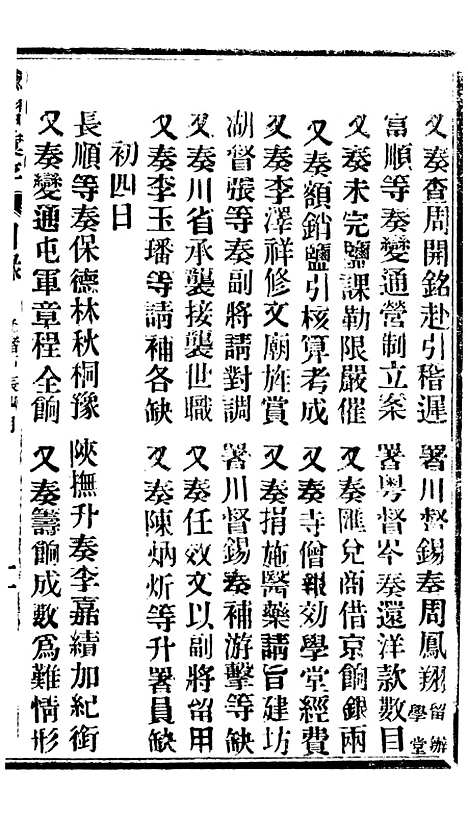 又奏查周開銘赴引稽遲
署川督錫奏周鳳翔留辦學堂
富順等奏變通營制立案
署粵督岑奏還洋款數目
又奏未完鹽課勒限嚴催
又奏匯兌商借京餉銀兩
又奏額銷鹽引核算考成
又奏寺僧報効學堂經費
又奏李澤祥修文廟旌賞
又奏捐施醫藥請旨建坊
湖督張等奏副將請對調
署川督錫奏補游擊等缺
又奏川省承襲接襲世職
又奏任效文以副將留用
又奏李玉璠等請補各缺
又奏陳炳炘等升署員缺
初四日
長順等奏保德林秋桐豫
陝撫升奏李嘉績加紀銜
又奏變通屯軍章程全餉
又奏籌餉成數爲難情形
目錄